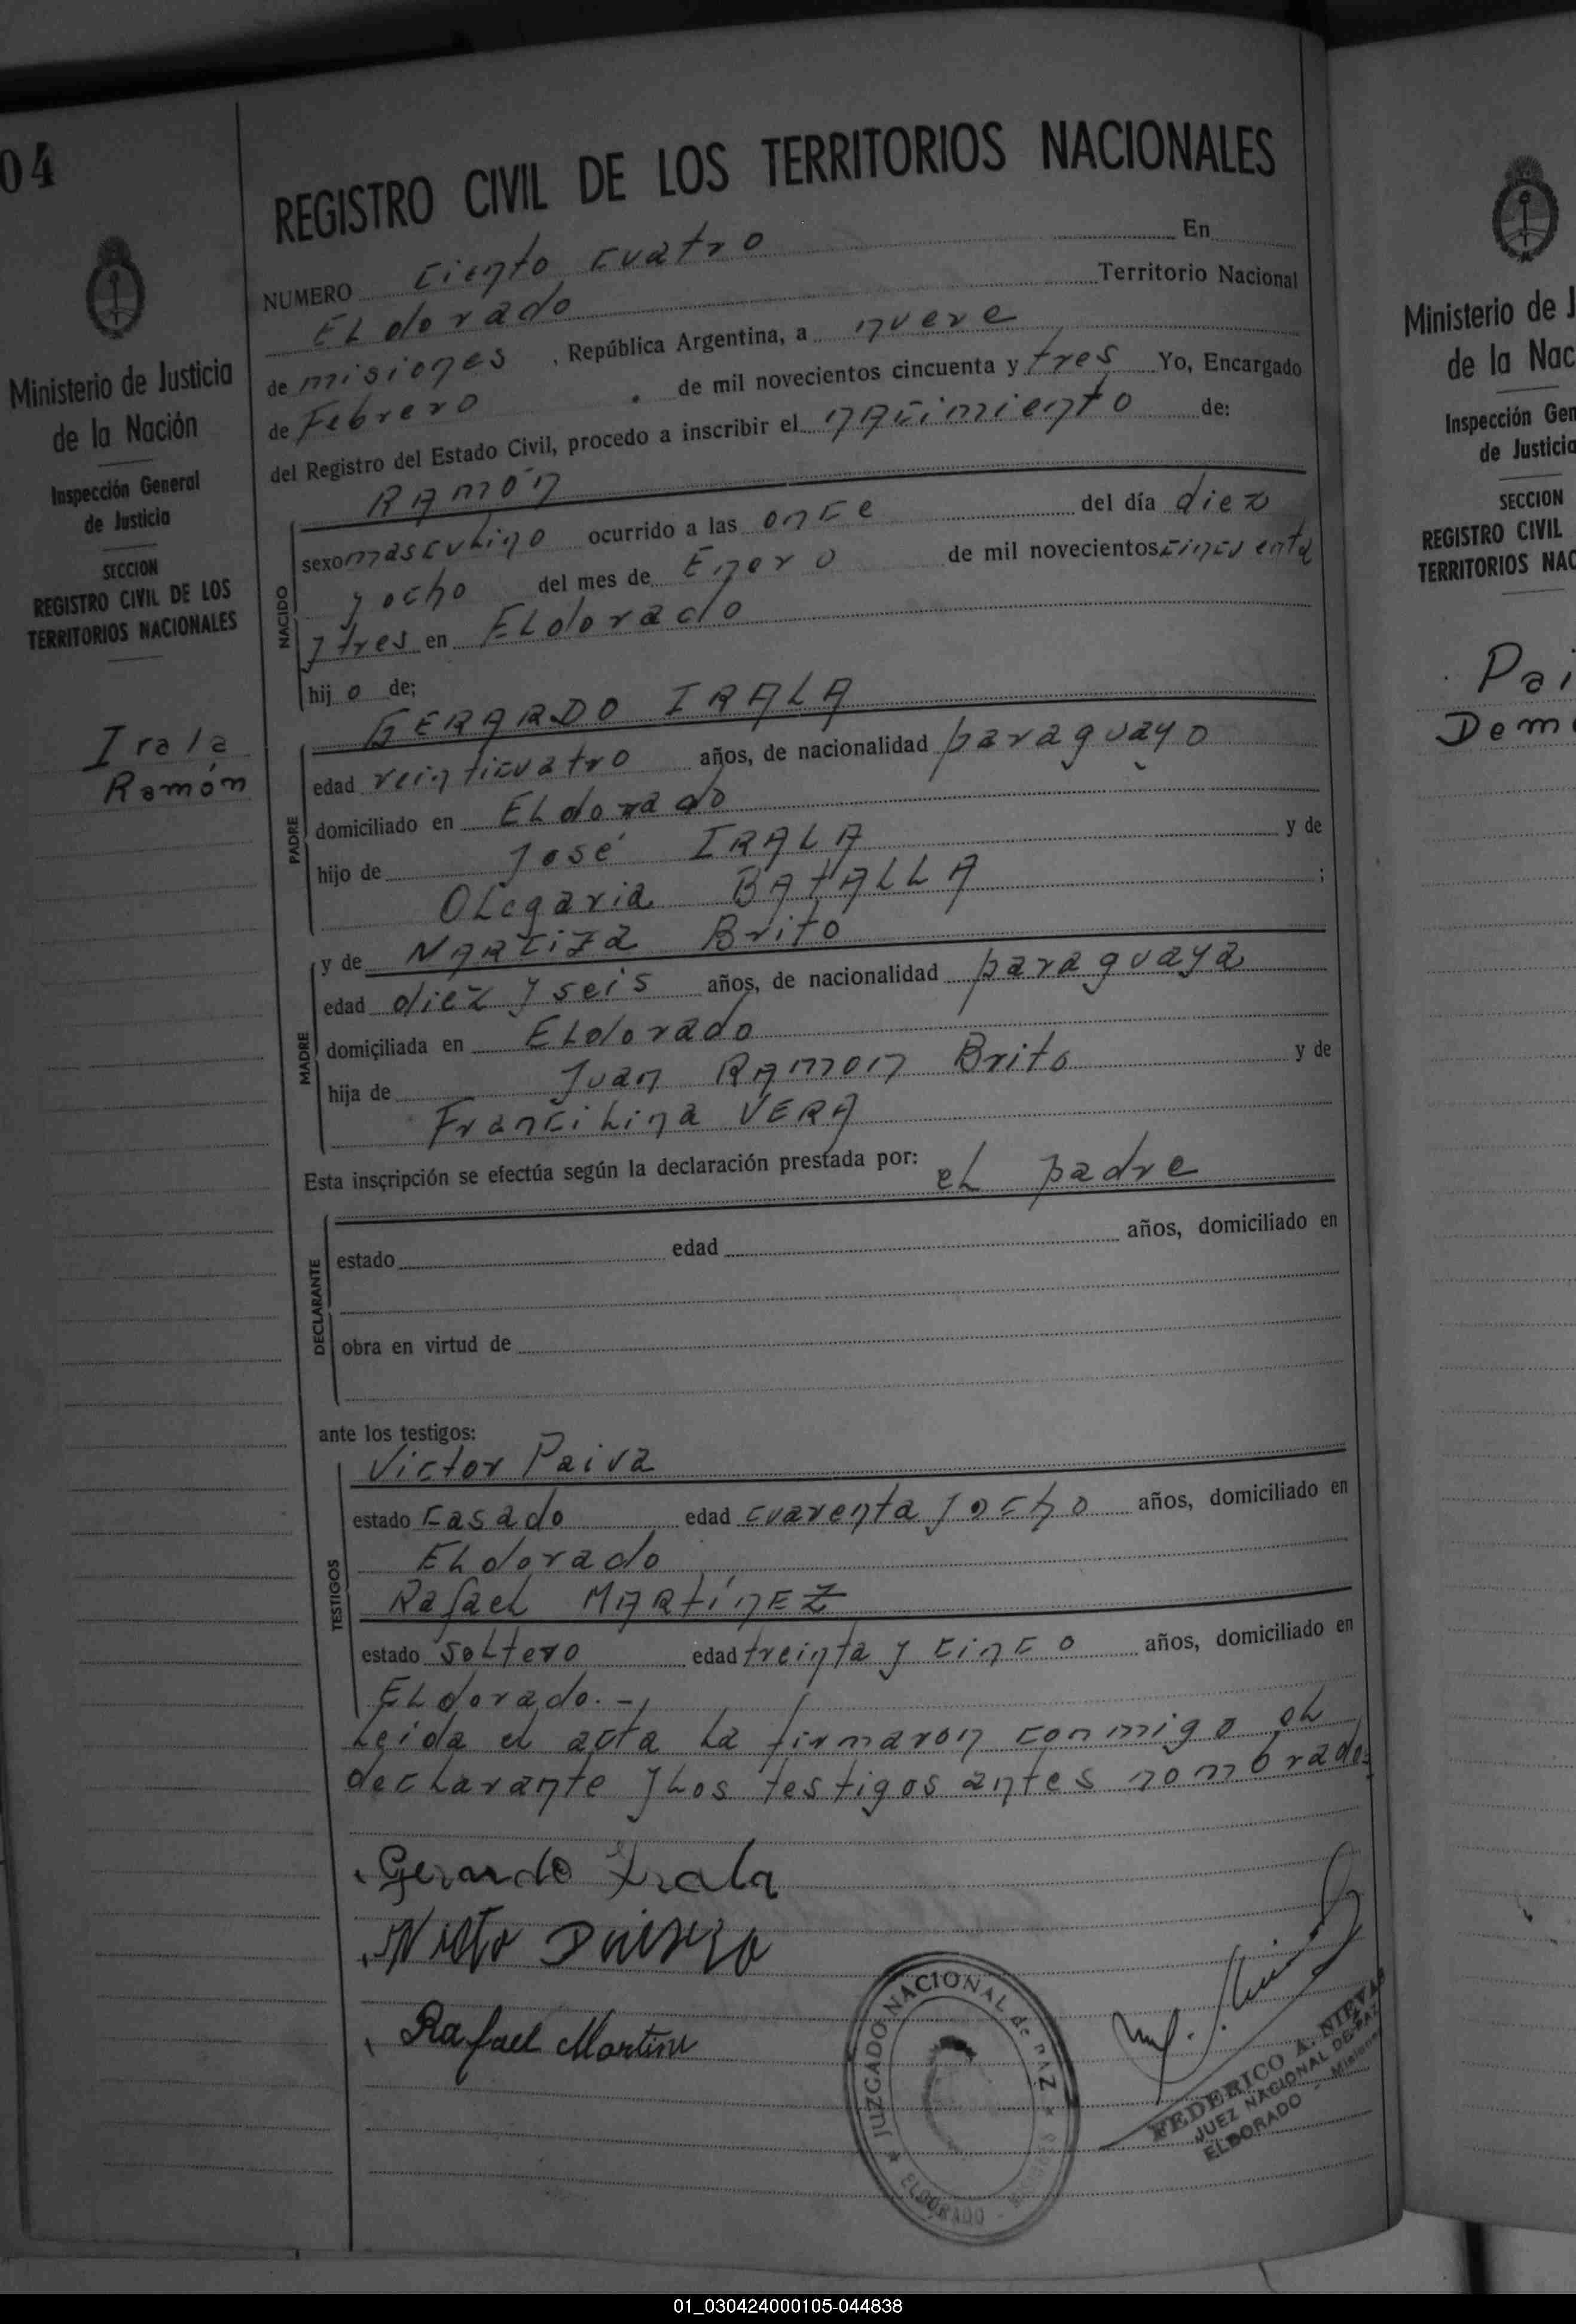 04
Ministerio de Justicia
de la Nación
Inspección General
de Justicia
SECCION
REGISTRO CIVIL DE LOS
TERRITORIOS NACIONALES
Irala
Ramón
REGISTRO CIVIL DE LOS TERRITORIOS NACIONALES
NUMERO ciento cuatro En
ELdorado Territorio Nacional
de misiones, República Argentina, a nueve
de Febrero de mil novecientos cincuenta y tres Yo, Encargado
del Registro del Estado Civil, procedo a inscribir el nAcimiento de:
RAmón
NACIDO
sexo mascuLino ocurrido a las once del día diez
y ocho del mes de Enero de mil novecientos cincuenta
y tres en ELdorado
hijo de;
GERARDO IRALA
PADRE
edad veinticuatro años, de nacionalidad paraguayo
domiciliado en ELdorado
hijo de José IRALA y de
OLegaria BAtALLA ;
y de NARCiza Brito
MADRE
edad diez y seis años, de nacionalidad paraguaya
domiciliada en ELdorado
hija de Juan RAmon Brito y de
FranciLina VERA
Esta inscripción se efectúa según la declaración prestada por: eL padre
DECLARANTE
estado edad años, domiciliado en
obra en virtud de
ante los testigos:
Victor Paiva
TESTIGOS
estado casado edad cuarenta y ocho años, domiciliado en
ELdorado
RafaeL MARtínEZ
estado soLtero edad treinta y cinco años, domiciliado en
ELdorado.-
Leida el acta La firmaron conmigo eL
decLarante y Los testigos antes nombrados
Gerardo Irala
Rafael Martine
JUZGADO NACIONAL de PAZ
ELDORADO - Misiones
FEDERICO A. NIEVAS
JUEZ NACIONAL DE PAZ
ELDORADO - Misiones
Ministerio de J
de la Nac
Inspección Gen
de Justicia
SECCION
REGISTRO CIVIL
TERRITORIOS NAC
Pai
Dem
01_030424000105-044838